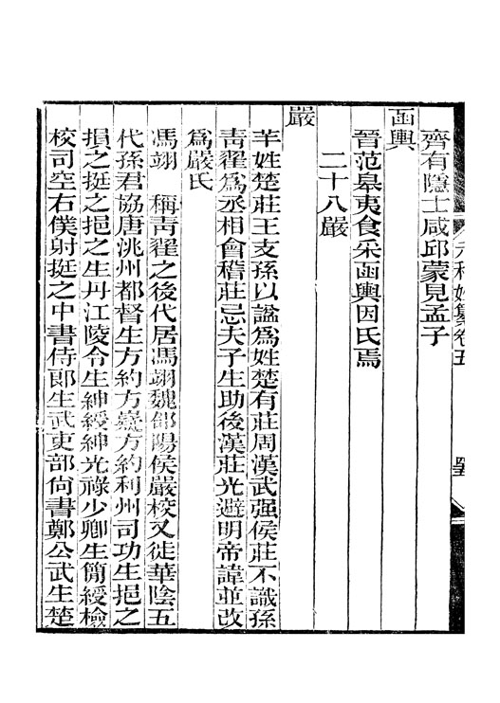 齊有隱士咸邱蒙見孟子
函輿
晉范皋夷食采函輿因氏焉
二十八嚴
嚴
芈姓楚莊王支孫以謚爲姓楚有莊周漢武强侯莊不識孫
靑翟爲丞相會稽莊忌夫子生助後漢莊光避明帝諱並改
爲嚴氏
馮翊 稱靑翟之後代居馮翊魏郃陽侯嚴校又徙華陰五
代孫君協唐洮州都督生方約方嶷方約利州司功生挹之
損之挺之挹之生丹江陵令生紳綬紳光祿少卿生簡綬檢
校司空右僕射挺之中書侍郎生武吏部尙書鄭公武生楚